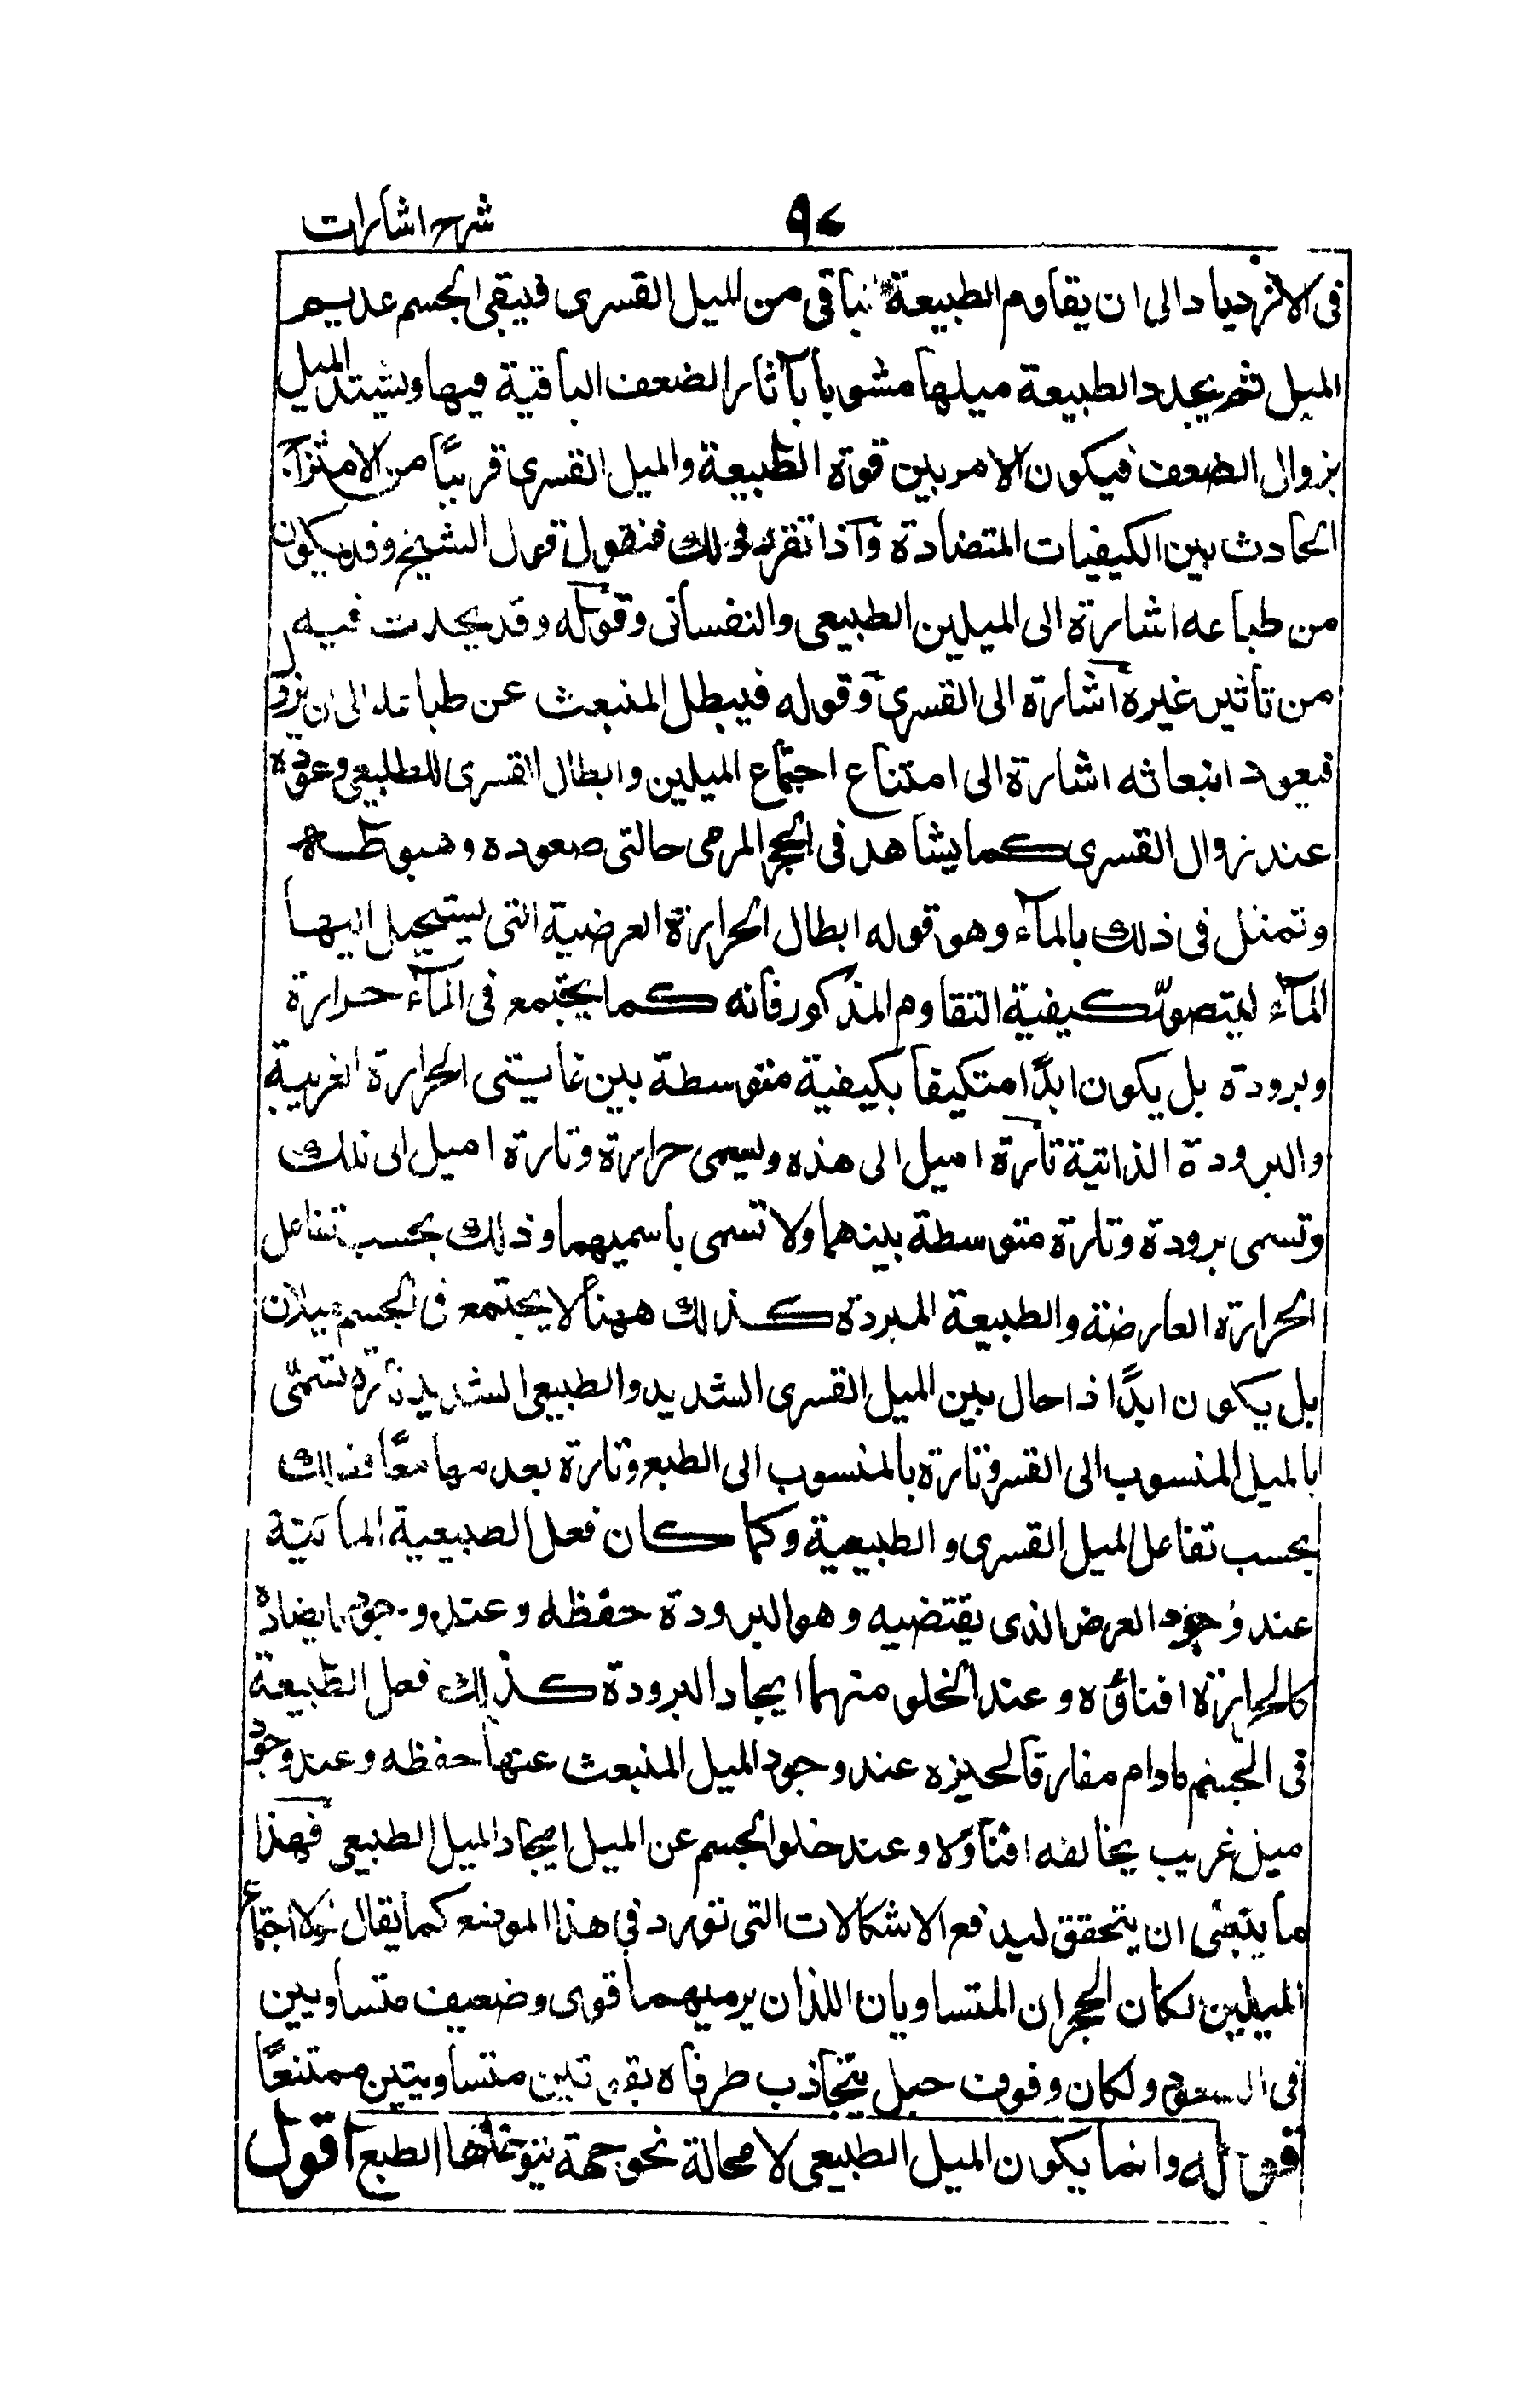 شرح اشارات
٩٤
فى الازدياد الى ان يقاوم الطبيعة بباقى من الميل القسرى فيبقى الجسم عديم
الميل ثم يجدد الطبيعة ميلها مشوبا بآثار الضعف الباقية فيها ويشتد الميل
بزوال الضعف فيكون الامر بين قوة الطبيعة والميل القسرى قريبًا من الامتزاج
الحادث بين الكيفيات المتضادة وآذا تقرر ذلك فنقول قول الشيخ وقد يكون
من طباعه اشارة الى الميلين الطبيعى والنفسانى وقوله وقد يحدث فيه
من تأثير غيره اشارة الى القسرى وقوله فيبطل المنبعث عن طباعه الى ان يزول
فيعود انبعاثه اشارة الى امتناع اجتماع الميلين وابطال القسرى للطبيعى وعوده
عند زوال القسرى كما يشاهد فى الحجر المرمى حالتى صعوده وهبوطه
وتمثل فى ذلك بالمآء وهو قوله ابطال الحرارة العرضية التى يستحيل اليها
المآء ليتصور كيفية التقاوم المذكور فانه كما يجتمع فى المآء حرارة
وبرودة بل يكون ابدًا متكيفا بكيفية متوسطة بين غايتى الحرارة الغريبة
والبرودة الذاتية تارة اميل الى هذه وليسمى حرارة وتارة اميل الى تلك
وتسمى برودة وتارة متوسطة بينهما ولا تسمى باسميهما وذلك بحسب تفاعل
الحرارة العارضة والطبيعة المبردة كذلك ههنا لا يجتمع فى الجسم ميلان
بل يكون ابدًا ذا حال بين الميل القسرى الشديد والطبيعى الشديد تارة تسمّى
بالميل المنسوب الى القسر وتارة بالمنسوب الى الطبع وتارة بعدمهما معًا فذلك
بحسب تفاعل الميل القسرى والطبيعية وكما كان فعل الطبيعية المائية
عند وجود العرض الذى يقتضيه وهو البرودة حفظه وعند وجود ما يضاده
كالحرارة افناؤه وعند الخلو منهما ايجاد البرودة كذلك فعل الطبيعة
فى الجسم مادام مفارقا لحيزه عند وجود الميل المنبعث عنها حفظه وعند وجود
ميل غريب يخالفه افناؤه وعند خلو الجسم عن الميل ايجاد الميل الطبيعى فهذا
ما ينبغى ان يتحقق ليدفع الاشكالات التى تورد فى هذا الموضع كما يقال لولا اجتماع
الميلين لكان الحجران المتساويان اللذان يرميهما قوى وضعيف متساويين
فى الصعود ولكان وقوف حبل يتجاذب طرفاه بقوتين متساويتين ممتنعًا
قوله وانما يكون الميل الطبيعى لا محالة نحو جهة يتوخاها الطبع اقول